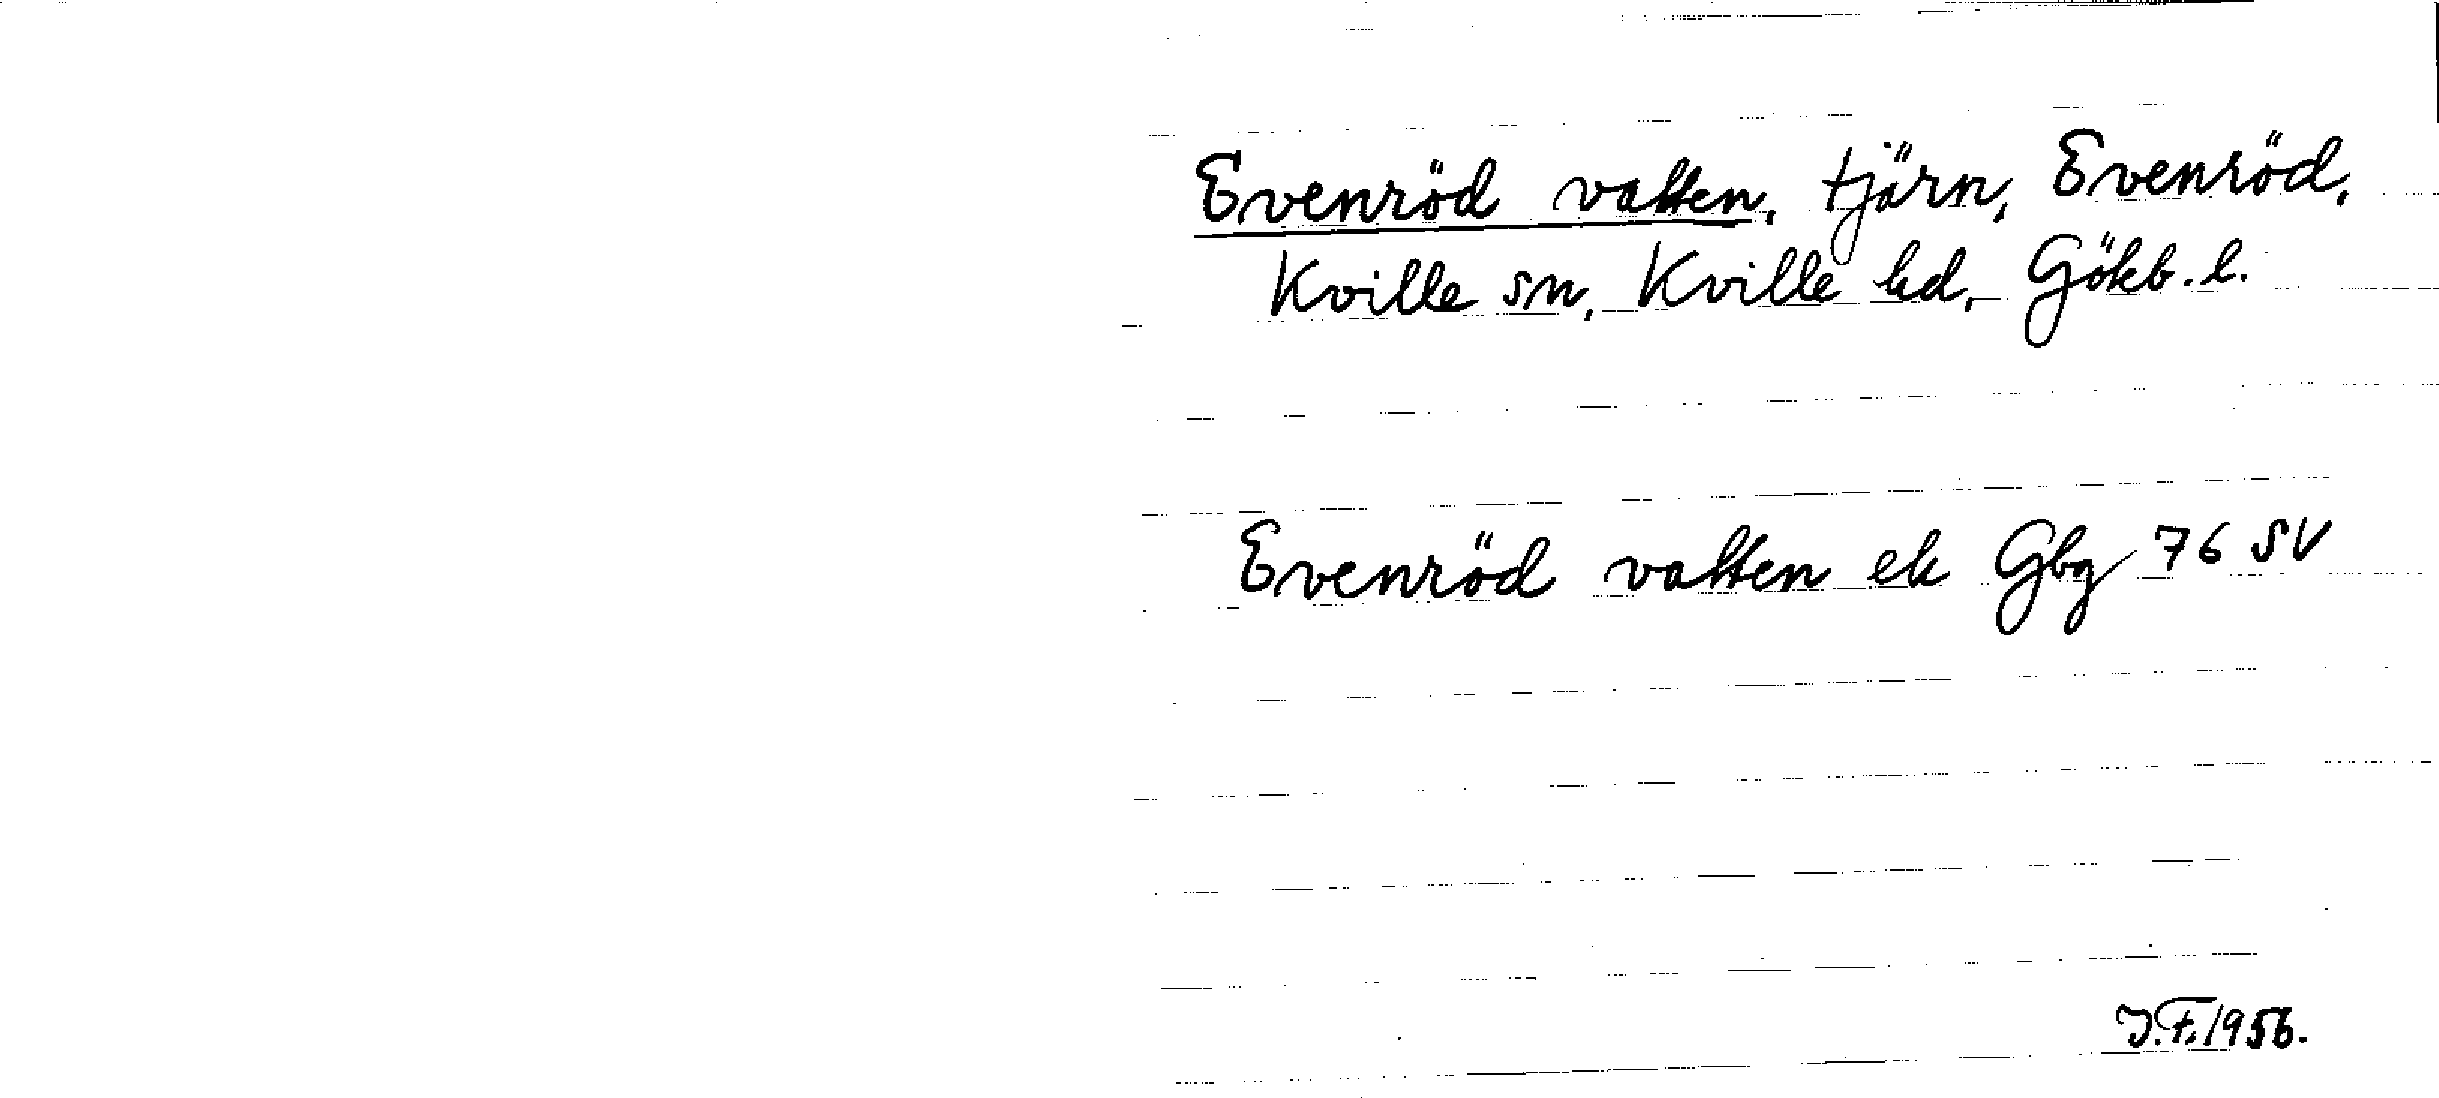 Evenröd vatten, tjärn, Evenröd,
Kville sn, Kville hd, Gökb. l.
Evenröd vatten ek Gbg 76 SV
J.F. 1956.